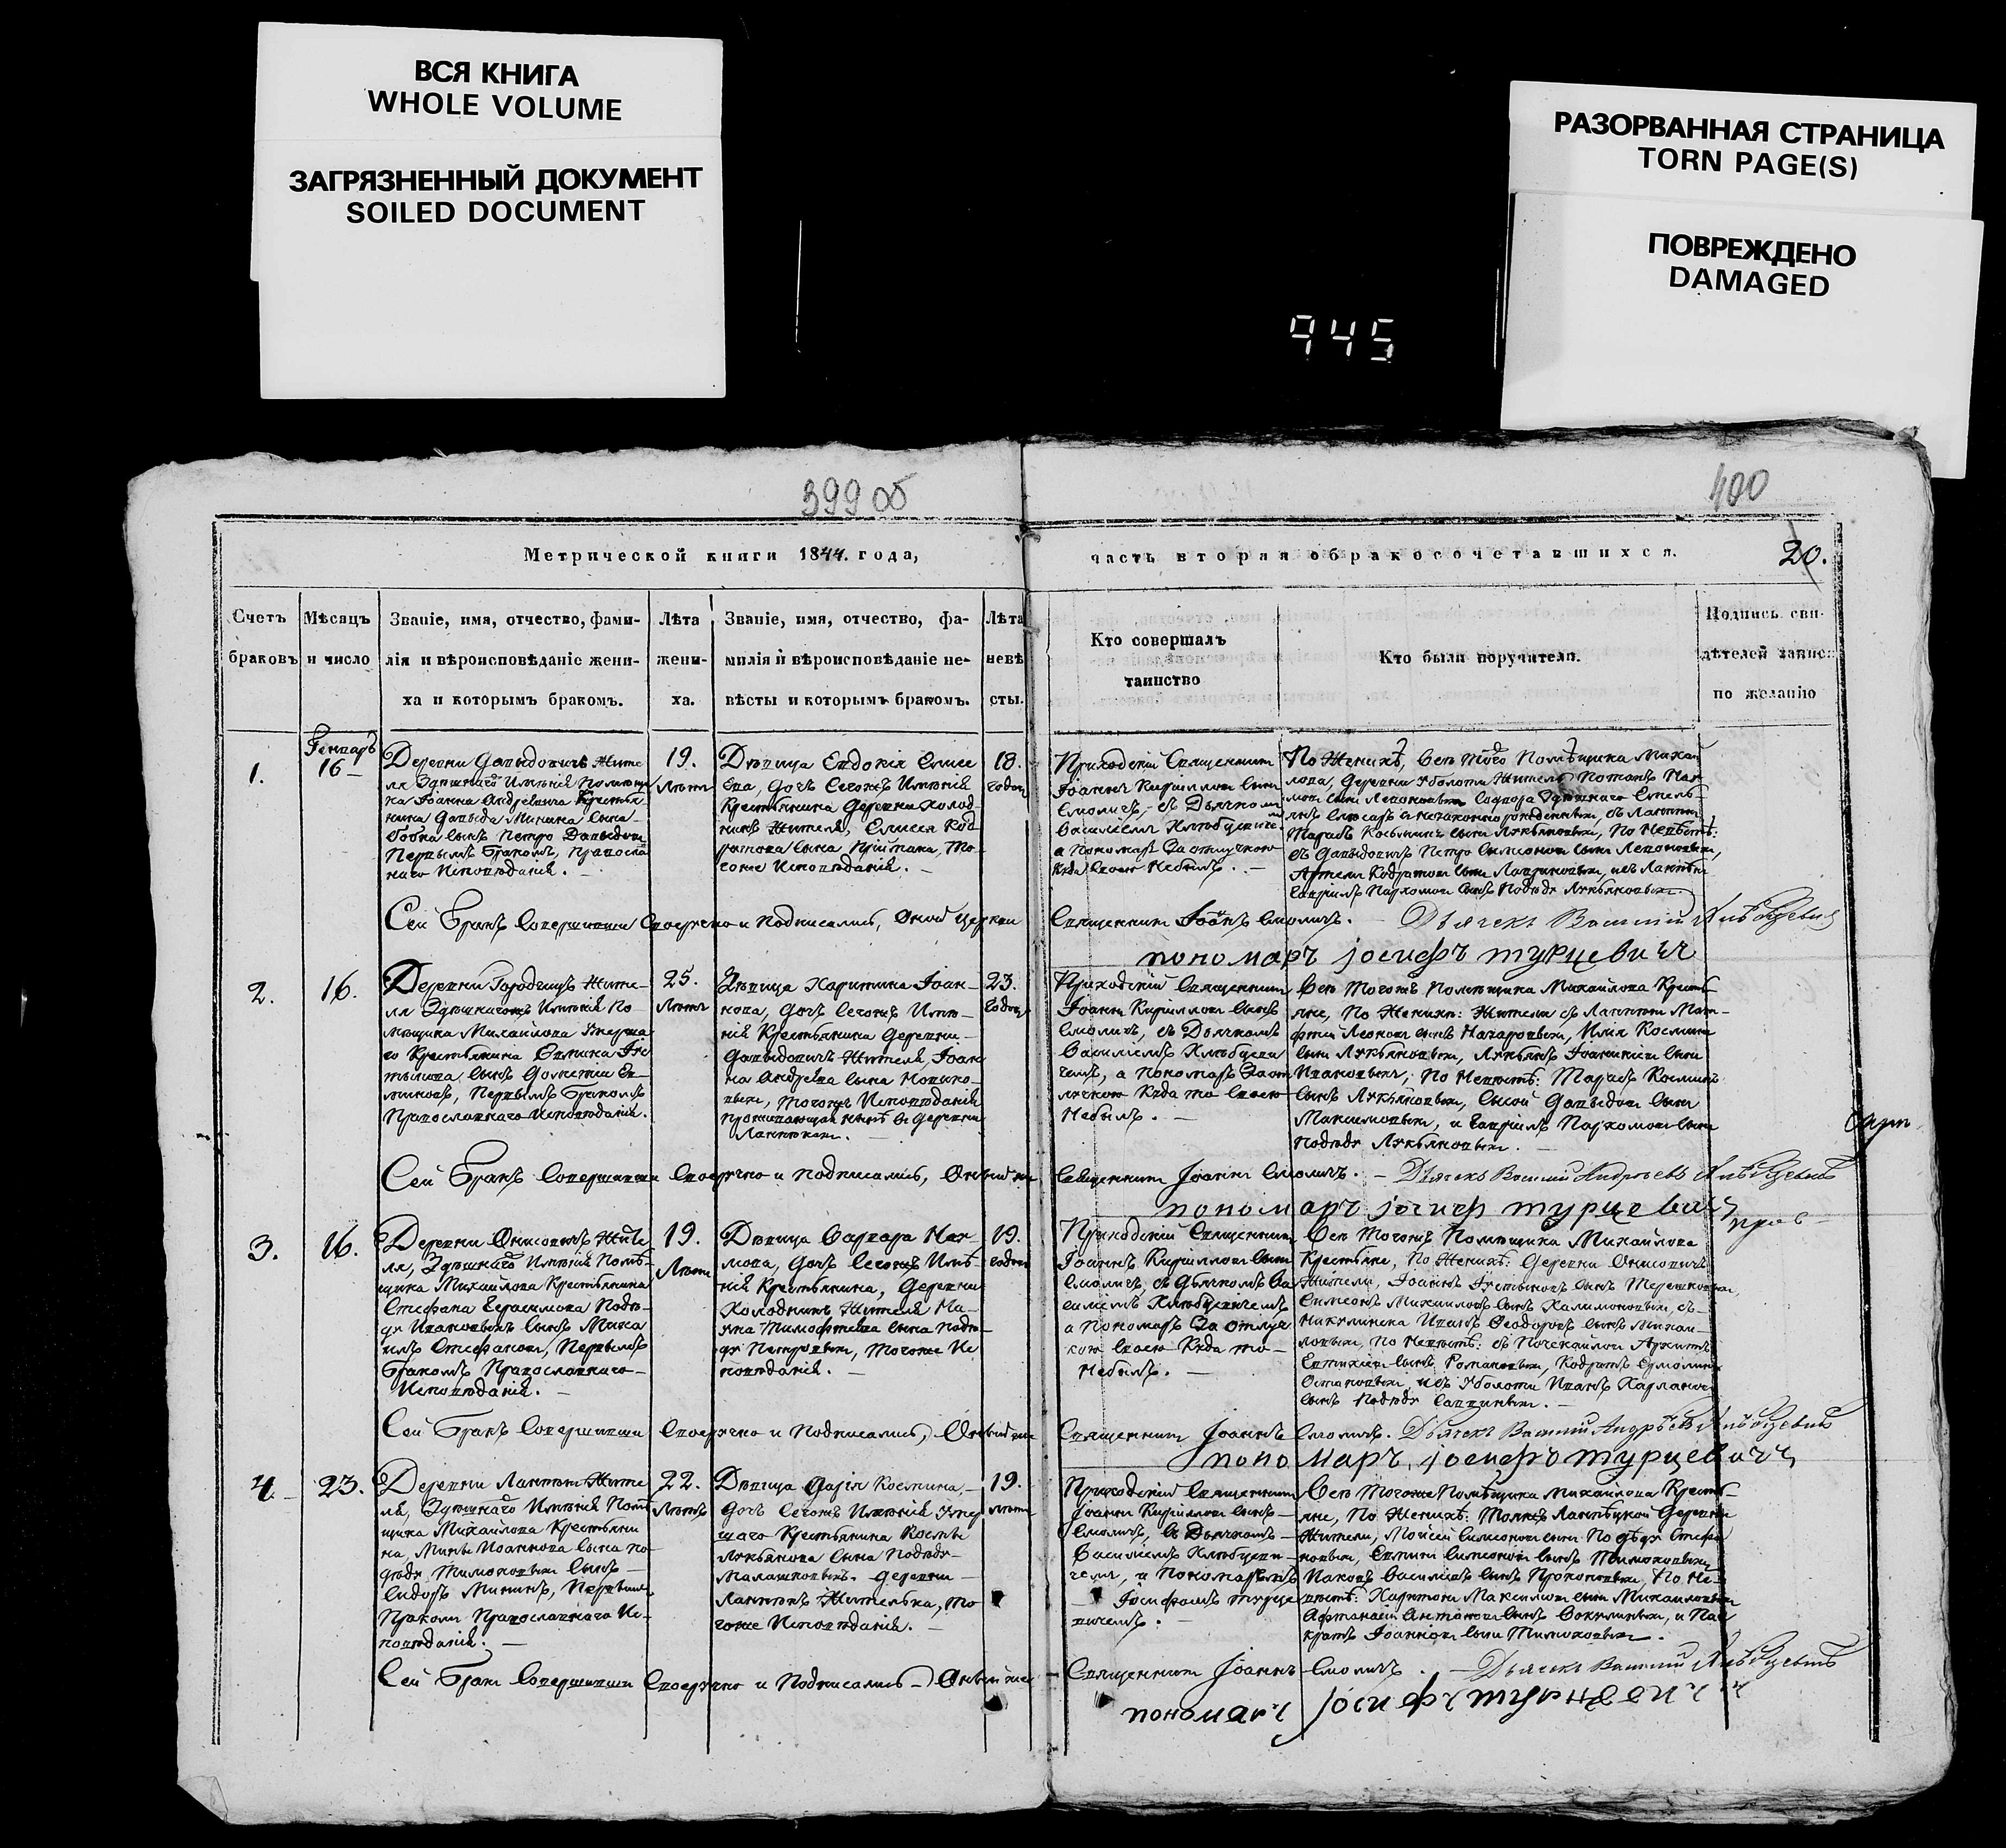 ВСЯ КНИГА
WHOLE VOLUME
ЗАГРЯЗНЕННЫЙ ДОКУМЕНТ
SOILED DOCUMENT
РАЗОРВАННАЯ СТРАНИЦА
TORN PAGE(S)
ПОВРЕЖДЕНО
DAMAGED
945
399 об
400
Метрической книги 1844. года,
часть вторая о бракосочетавшихся.
20.
Счетъ браковъ
Мѣсяцъ и число
Званіе, имя, отчество, фами-
лія и вѣроисповѣданіе жени-
ха и которымъ бракомъ.
Лѣта
жени-
ха.
Званіе, имя, отчество, фа-
милія и вѣроисповѣданіе не-
вѣсты и которымъ бракомъ.
Лѣта
невѣ
сты.
Кто совершалъ
таинство
Кто были поручители.
Подпись сви-
дѣтелей запис
по желанію
1.
Генварь
16
Деревни Давыдовичъ Жите
ля Здѣшняго Имѣнія Помѣщи
ка Іоанна Андреевича Крестья
нина Давыда Минина Сына
Петро Давыдовъ
Первымъ Бракомъ, Правосла
внаго Исповѣданія.
19.
Лѣтъ
Дѣвица Евдокія Елисе
ева, Дочь Сегожъ Имѣнія
Крестьянина Деревни Холод
никъ Жителя, Елисея Код
ратова Сына Приймака, То
гоже Исповѣданія.
18.
годовъ
Приходскій Священникъ
Іоаннъ Кирилловъ Сынъ
Смоличъ, съ Дьячкомъ
Василіемъ Хлѣбцевиче
а Пономарь За отлучкою
Куда Своею Небылъ.
По Женихѣ, Сего того Помѣщика Михай
лова, Деревни Уболоти Жители Потапъ Нау
Тарасъ Косьминъ Сынъ Лукьяновичъ, По Невѣстѣ:
съ Давыдовичъ Петро Симеоновъ Сынъ
Артемъ Кодратовъ Сынъ
Гавріилъ Пархомовъ Сынъ Подюдя Лукьяновичъ
Сей Бракъ Совершивши Своеручно и Подписались, Оной Церкви
Священникъ Іоаннъ Смоличъ. Дьячекъ Василій Хлѣбцевичъ
пономаръ јосифъ турцевичъ
2.
16.
Деревни Городчицъ Жите-
ля Здѣшнягожъ Имѣнія По-
мѣщика Михайлова Умерша
го Крестьянина
Сынъ
Первымъ Бракомъ
Православнаго Исповѣданія.
25.
Лѣтъ
Дѣвица Харитина Іоан-
нова, Дочь Сегожъ Имѣ-
нія Крестьянина Деревни
Давыдовичъ Жителя, Іоан
на Андреева Сына
Тогожъ Исповѣданія
проживающая нынѣ въ Деревни
23.
годовъ
Приходскій Священникъ
Іоаннъ Кирилловъ Сынъ
Смоличъ, съ Дьячкомъ
Василіемъ Хлѣбцеви
чемъ, а Пономарь За от
лучкою Куда то Своею
Небылъ.
Сего Тогожъ Помѣщика Михайлова Крестья
яне, По Женихѣ: Жители
фтей Леоновъ Сынъ Назаровичъ, Илія Космин
Сынъ Лукьяновичъ, Лукьянъ Іоанникіевъ Сынъ
Ивановичъ; По Невѣстѣ: Тарасъ Косминъ
Сынъ Лукьяновичъ, Сысой Давыдовъ Сынъ
Максимовичъ, и Гавріилъ Пархомовъ Сынъ
Подюдя Лукьяновичъ.
Сей Бракъ Совершивши Своеручно и Подписались, Оной же
Священникъ Іоаннъ Смоличъ. Дьячекъ Василій Андреевъ Хлѣбцевичъ
пономаръ јосифъ турцевичъ
3.
16.
Деревни Онисовичъ Жите
ля, Здѣшняго Имѣнія Помѣ-
щика Михайлова Крестьянина
Стефана Герасимова Подю-
дя Ивановичъ Сынъ Миха
илъ Стефановъ, Первымъ
Бракомъ Православнаго
Исповѣданія.
19.
Лѣтъ
Дѣвица Варвара Нау
мова, Дочь Сегожъ Имѣ-
нія Крестьянина, Деревни
Холодникъ Жителя На-
ума Тимофѣева Сына Подю
дя Петровичъ, Тогоже Ис
повѣданія.
19.
годовъ
Приходскій Священникъ
Іоаннъ Кирилловъ Сынъ
Смоличъ, съ Дьячкомъ Ва
силіемъ Хлѣбцевичемъ
а Пономарь За отлуч
кою Своею Куда то
Небылъ.
Сего Тогожъ Помѣщика Михайлова
Крестьяне, По Женихѣ: Деревни Онисовичъ
Жители, Іоаннъ Устиновъ Сынъ Терешковичъ,
Симеонъ Михайловъ Сынъ Халимоновичъ, съ
Иванъ Феодоровъ Сынъ Михай-
ловичъ, По Невѣстѣ:
Сынъ Романовичъ, Кодратъ Ермолинъ
Остаповичъ, изъ Уболоти Иванъ Харланов
Сынъ Подюдя Саввиничъ.
Сей Бракъ Совершивши Своеручно и Подписались, Оной же
Священникъ Іоаннъ Смоличъ. Дьячекъ Василій Андреевъ Хлѣбцевичъ
пономаръ, јосифъ турцевичъ
4.
23.
Жите
ля, Здѣшняго Имѣнія Помѣ
щика Михайлова Крестьяни
на, Мины Иоаннова Сына По
дюдя Тимоховичъ Сынъ
Сидоръ Мининъ, Первымъ
Бракомъ Православнаго Ис-
повѣданія.
22.
Лѣтъ
Дѣвица Дарія Космина,
Дочь Сегожъ Имѣнія Умер
шаго Крестьянина Космы
Лукьянова Сына Подюдя
Малашковичъ. Деревни
Жителька, То
гоже Исповѣданія.
19.
лѣтъ
Приходскій Священникъ
Іоаннъ Кирилловъ Сынъ
Смоличъ, съ Дьячкомъ
Василіемъ Хлѣбцеви-
чемъ, и Пономаремъ
Іосифомъ Турце
вичемъ.
Сего Тогоже Помѣщика Михайлова Кресть
яне, По Женихѣ: Деревни
Жители, Моисей Симеоновъ Сынъ Подюдя Стефа
новичъ, Симеоновъ Сынъ Тимоховичъ
Василіевъ Сынъ Прокоповичъ, По Не-
вѣстѣ: Харитонъ Максимовъ Сынъ Михайлович
Афанасій Антоновъ Сынъ и Пан
кратъ Іоанновъ Сынъ Тимоховичъ.
Сей Бракъ Совершивши Своеручно и Подписались Оной же
Священникъ Іоаннъ Смоличъ. Дьячекъ Василій Хлѣбцевичъ
пономаръ јосифъ турцевичъ